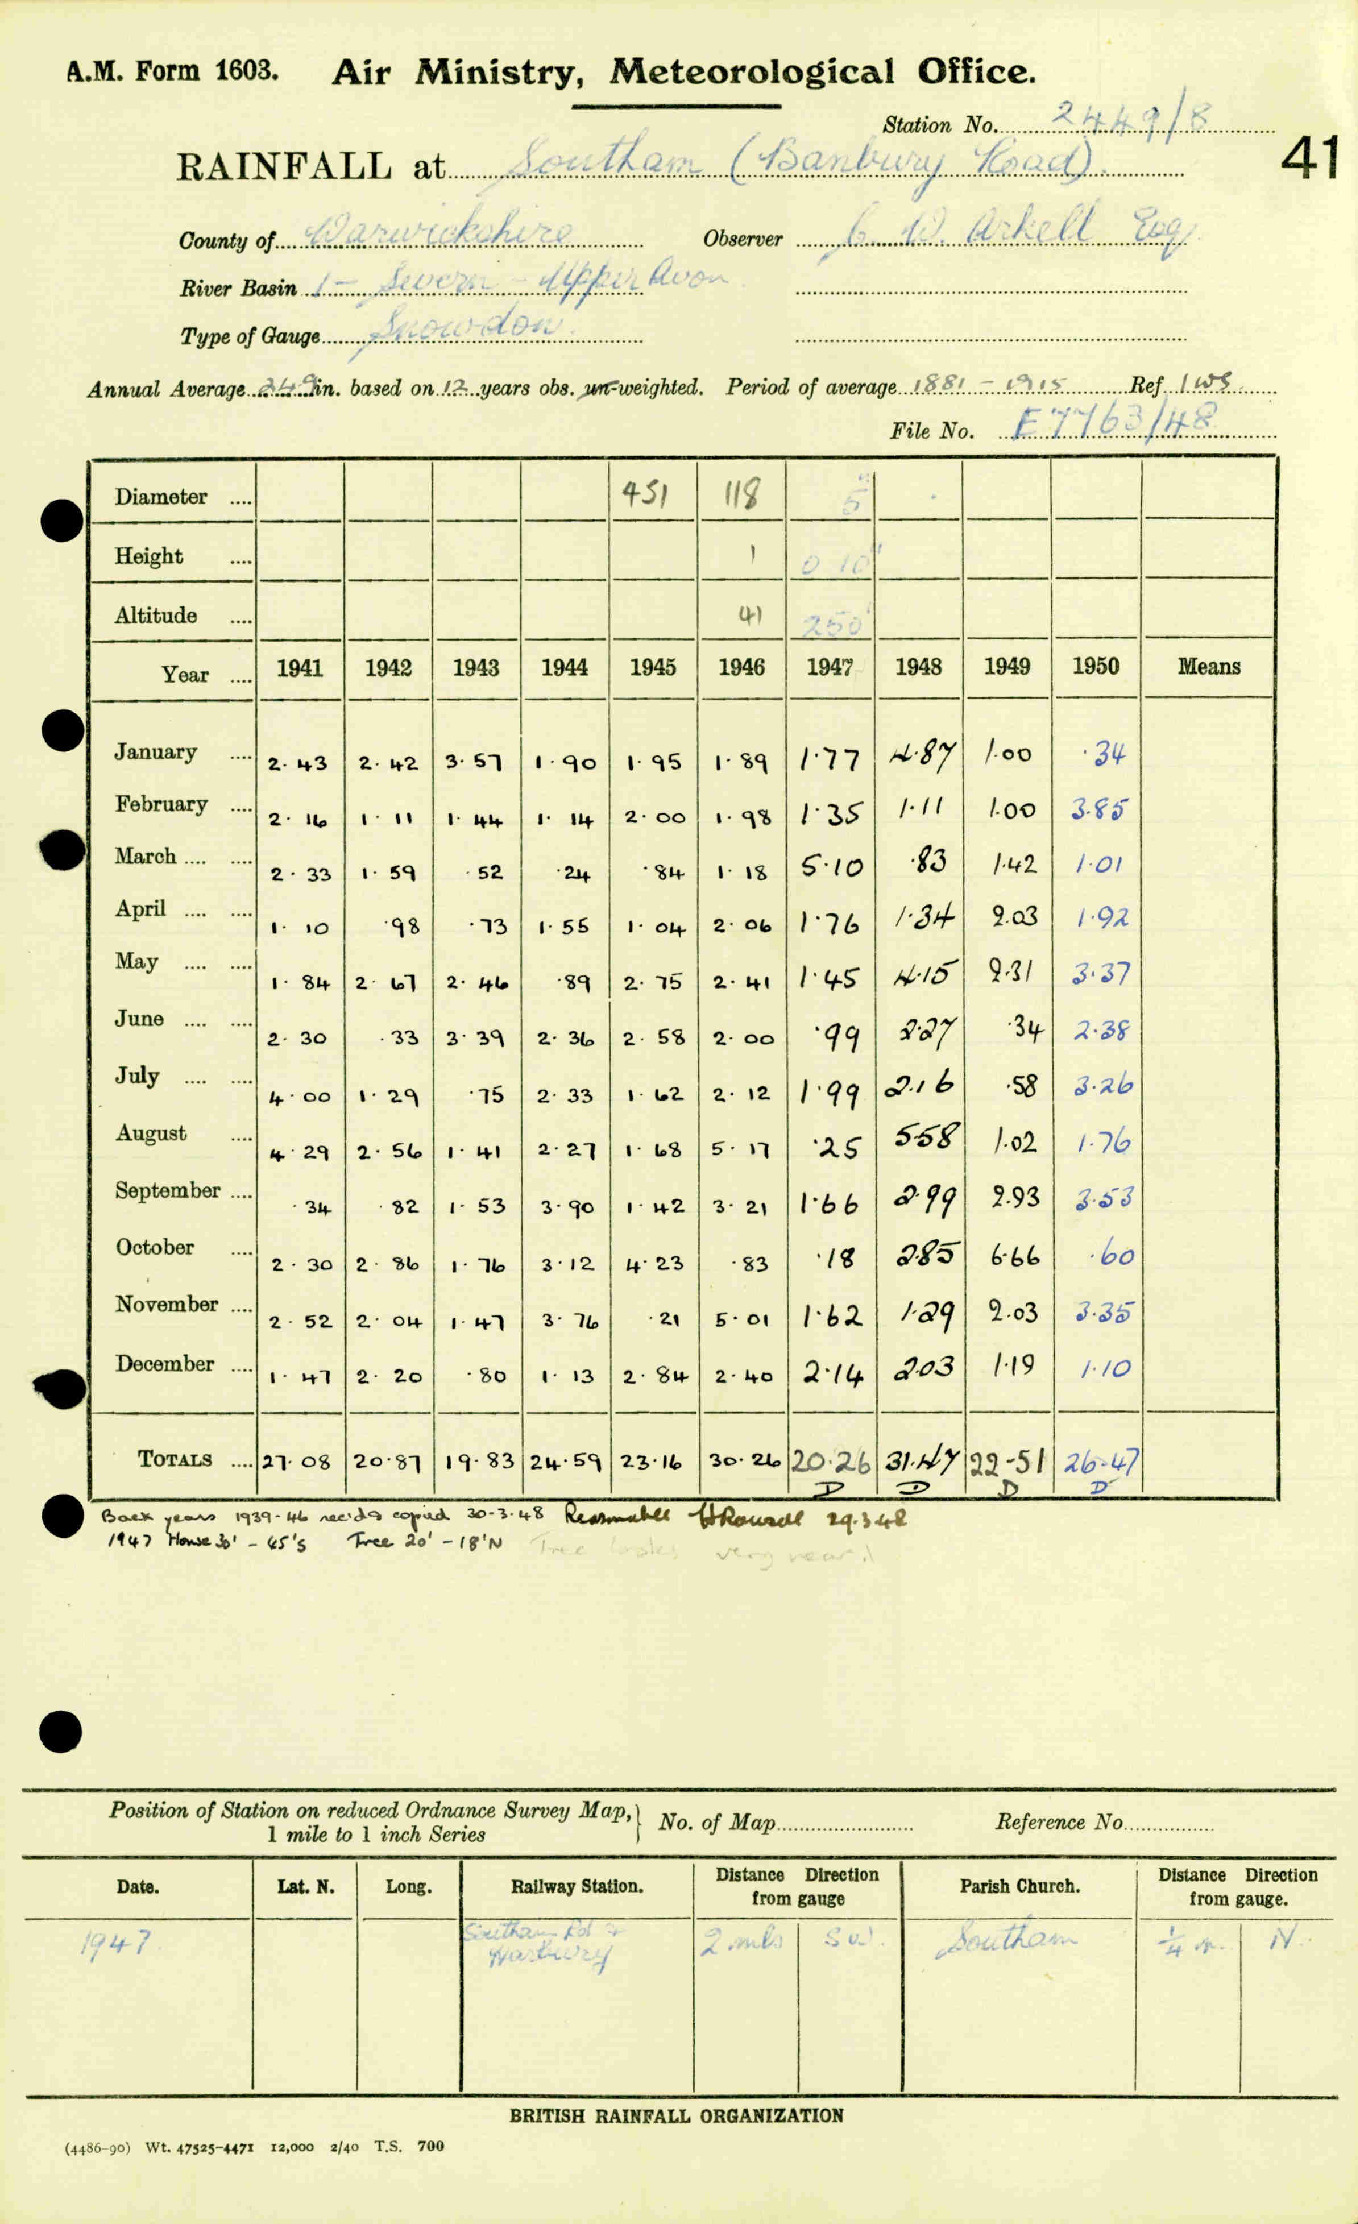 A.M. Form 1603. Air Ministry, Meteorological Office.
Station No. 2449/8
41
RAINFALL at Southam (Banbury Road).
County of Warwickshire Observer C. W. Arkell Esq
River Basin 1 - Severn - Upper Avon
Type of Gauge Snowdon.
Annual Average 24.9 in. based on 12 years obs. un-weighted. Period of average 1881 - 1915 Ref. IWS
File No. E7763/48
Diameter .... 451 118 5"
Height .... 1 0 10"
Altitude .... 41 250'
Year .... 1941 1942 1943 1944 1945 1946 1947 1948 1949 1950 Means
January .... 2.43 2.42 3.57 1.90 1.95 1.89 1.77 4.87 1.00 .34
February .... 2.16 1.11 1.44 1.14 2.00 1.98 1.35 1.11 1.00 3.85
March .... .... 2.33 1.59 .52 .24 .84 1.18 5.10 .83 1.42 1.01
April .... .... 1.10 .98 .73 1.55 1.04 2.06 1.76 1.34 2.03 1.92
May .... .... 1.84 2.67 2.46 .89 2.75 2.41 1.45 4.15 2.31 3.37
June .... .... 2.30 .33 3.39 2.36 2.58 2.00 .99 2.27 .34 2.38
July .... .... 4.00 1.29 .75 2.33 1.62 2.12 1.99 2.16 .58 3.26
August .... 4.29 2.56 1.41 2.27 1.68 5.17 .25 5.58 1.02 1.76
September .... .34 .82 1.53 3.90 1.42 3.21 1.66 2.99 2.93 3.53
October .... 2.30 2.86 1.76 3.12 4.23 .83 .18 2.85 6.66 .60
November .... 2.52 2.04 1.47 3.76 .21 5.01 1.62 1.29 2.03 3.35
December .... 1.47 2.20 .80 1.13 2.84 2.40 2.14 2.03 1.19 1.10
TOTALS .... 27.08 20.87 19.83 24.59 23.16 30.26 20.26 31.47 22.51 26.47
D D D D
Back years 1939-46 recd & copied 30-3-48 Reasonable 29.3.48
1947 House 30' - 45'S Tree 20' - 18'N Tree looks very near!
Position of Station on reduced Ordnance Survey Map, 1 mile to 1 inch Series } No. of Map Reference No.
Date. Lat. N. Long. Railway Station. Distance Direction from gauge Parish Church. Distance Direction from gauge.
1947 Southam Rd & Harbury 2 mls SW. Southam ¼ m. N.
BRITISH RAINFALL ORGANIZATION
(4486-90) Wt. 47525-4471 12,000 2/40 T.S. 700